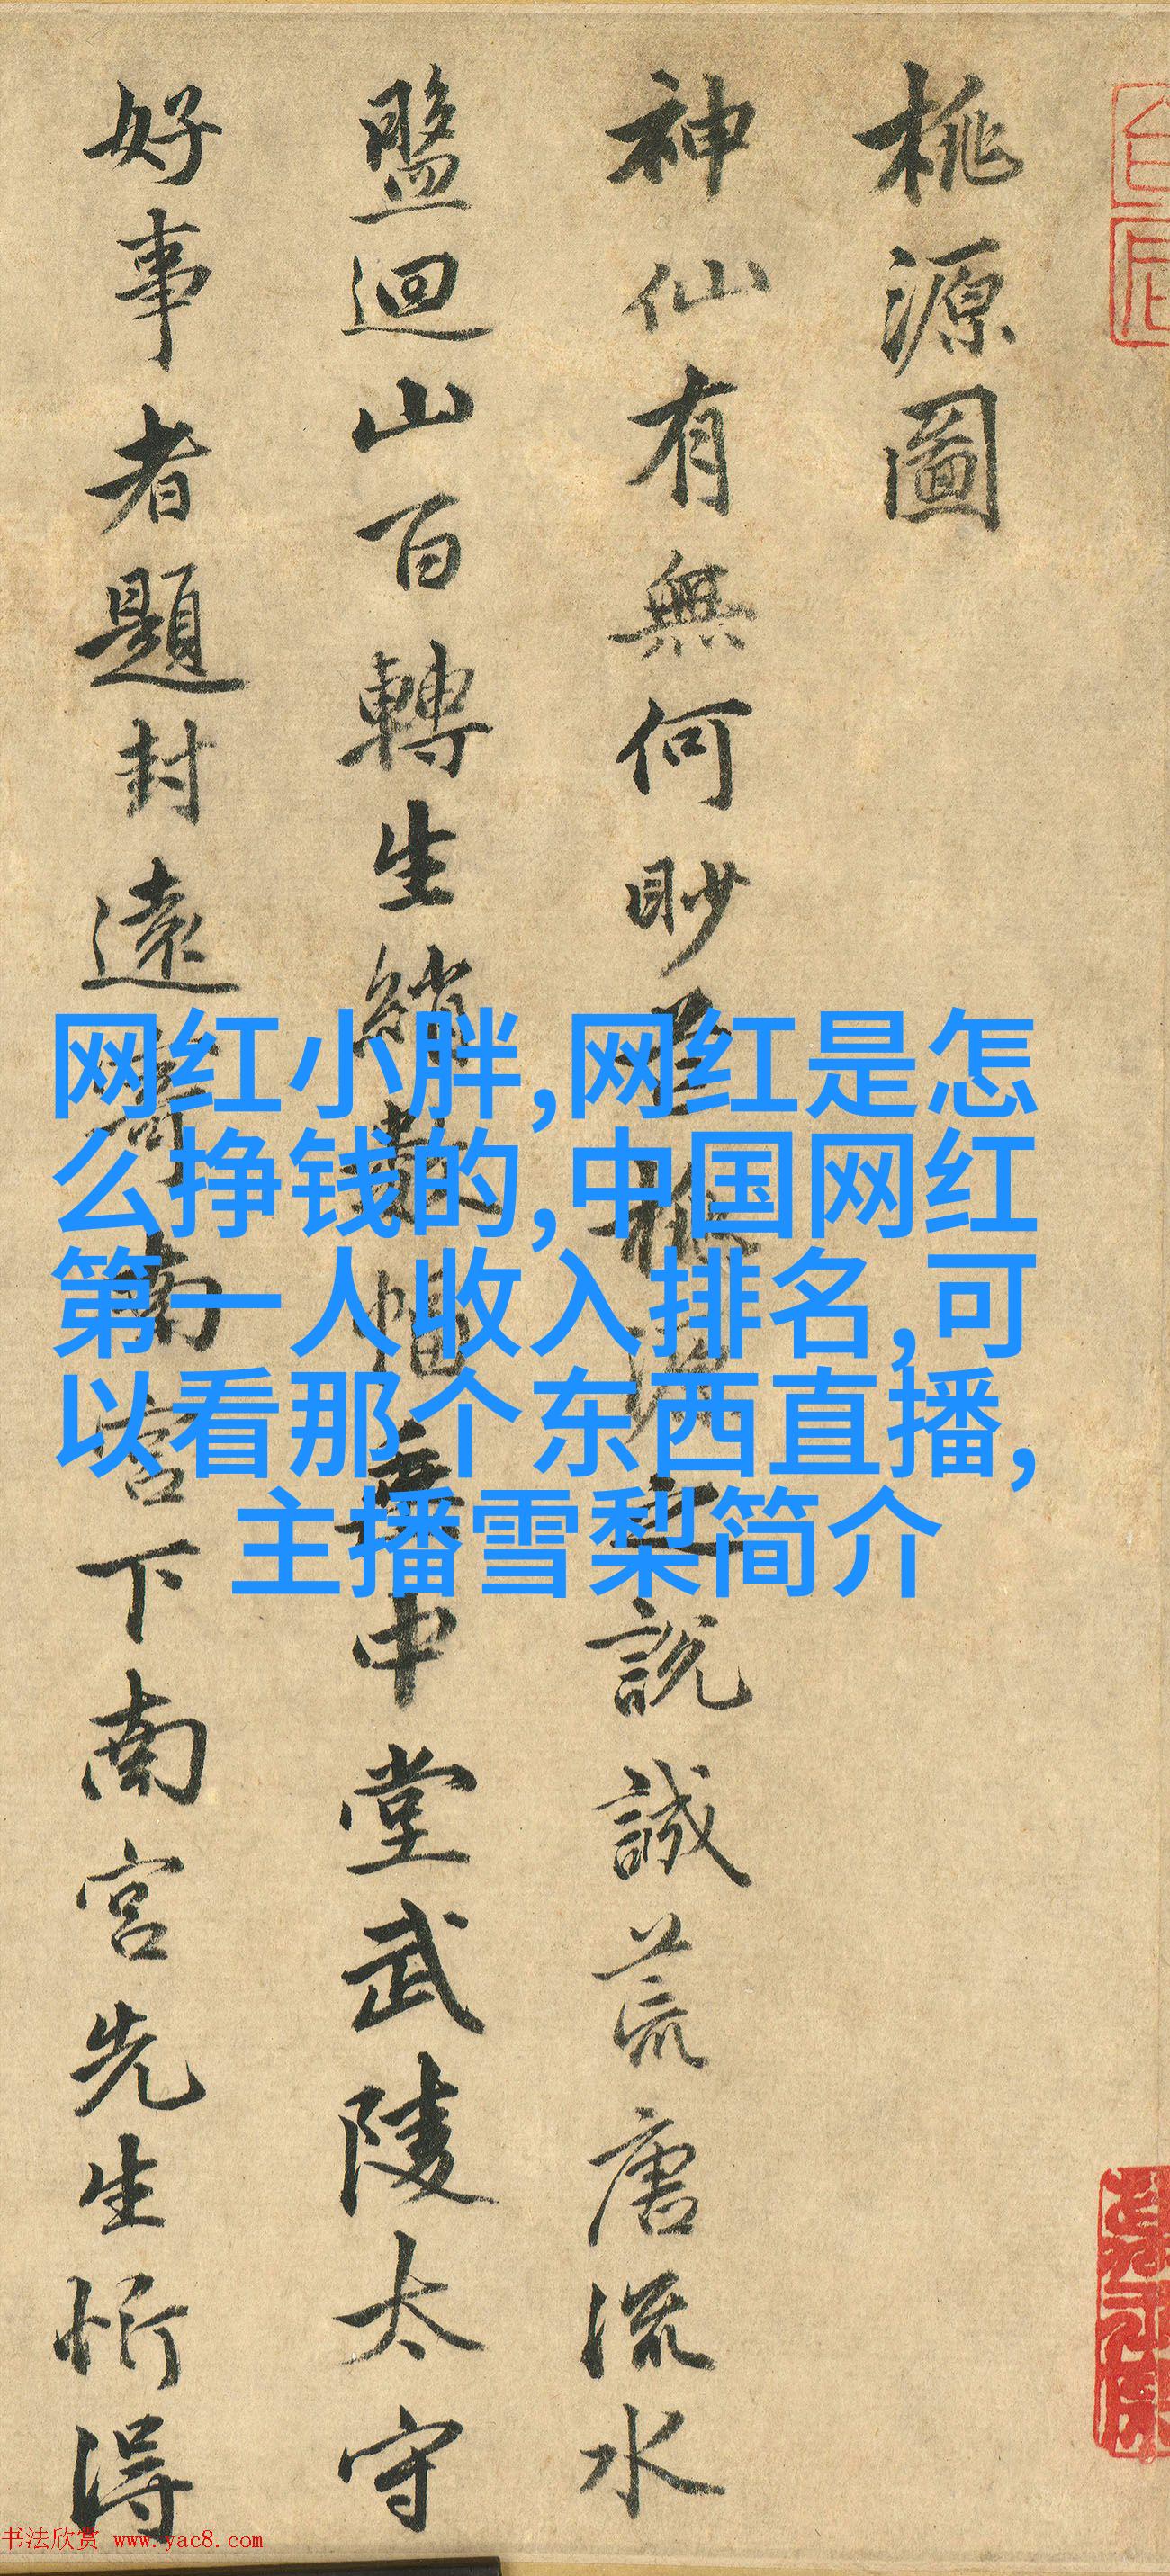 桃源圖
神仙有無何眇芒桃源之說誠荒唐流水
盤迴山百轉生綃數幅垂中堂武陵太守
好事者題封遠寄南宮下南宮先生忻得
网红小胖,网红是怎
么挣钱的,中国网红
第一人收入排名,可
以看那个东西直播,
主播雪梨简介
书法欣赏 www.yac8.com